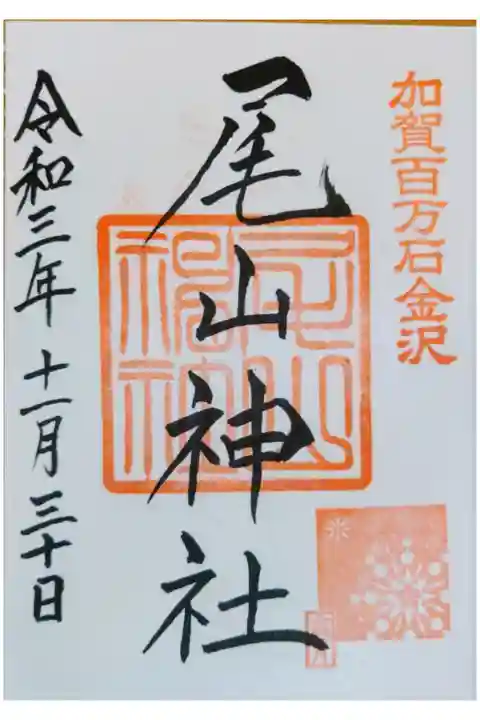 加賀百万石金沢
尾山神社
令和三年十一月三十日